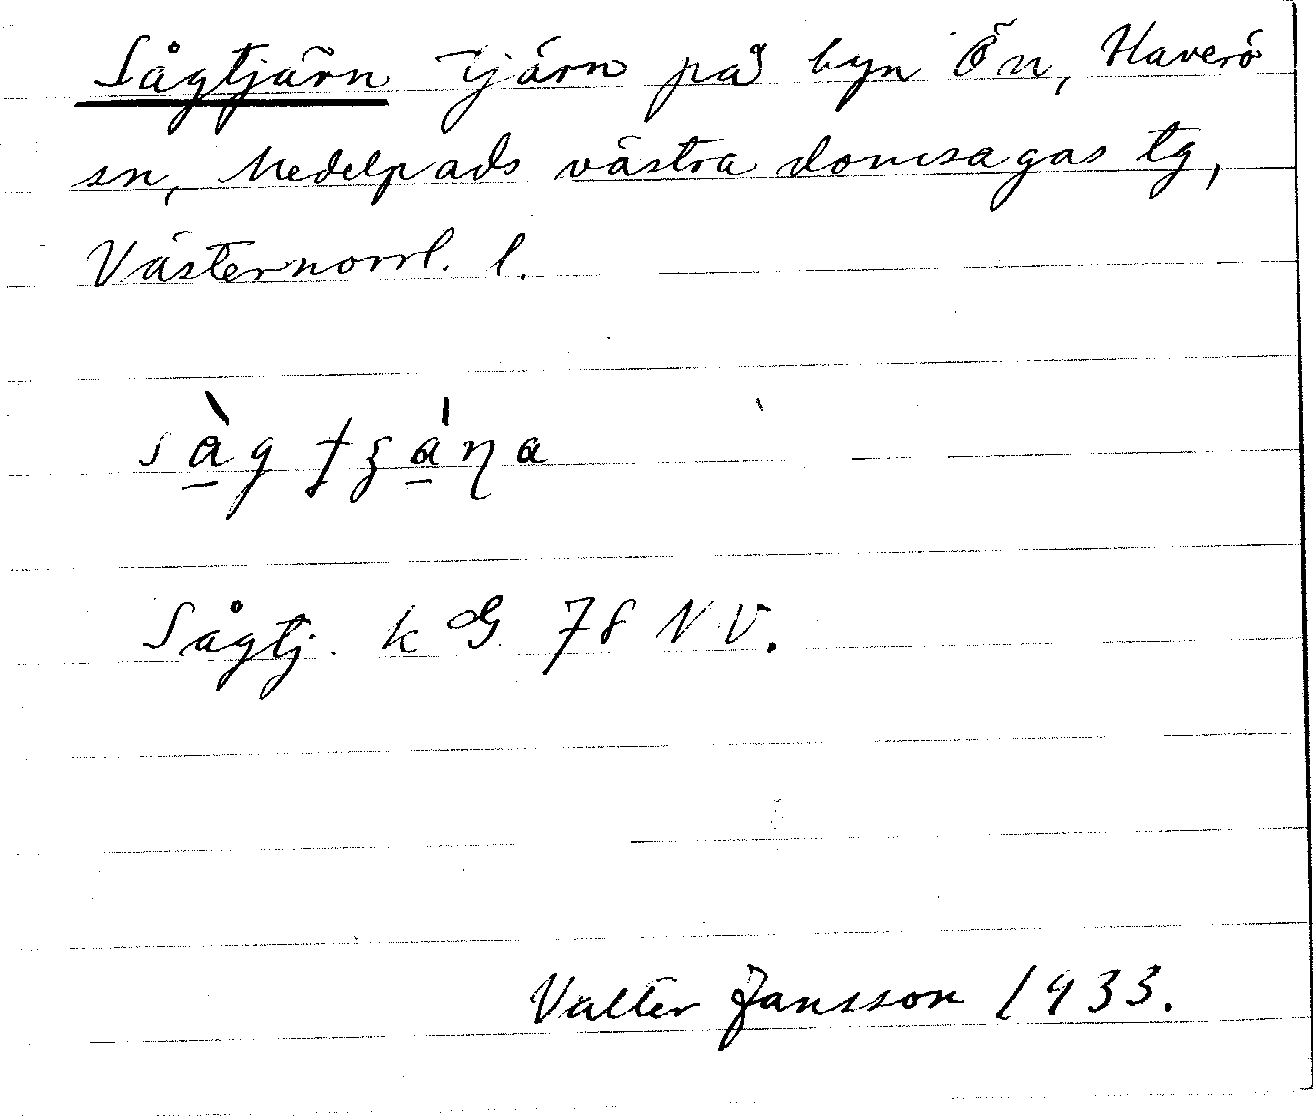 Sågtjärn Tjärn på byn Ön, Haverö
sn, Medelpads västra domsagas tg,
Västernorrl. l.
Sågtj. k G 78 NV.
Valter Jansson 1933.